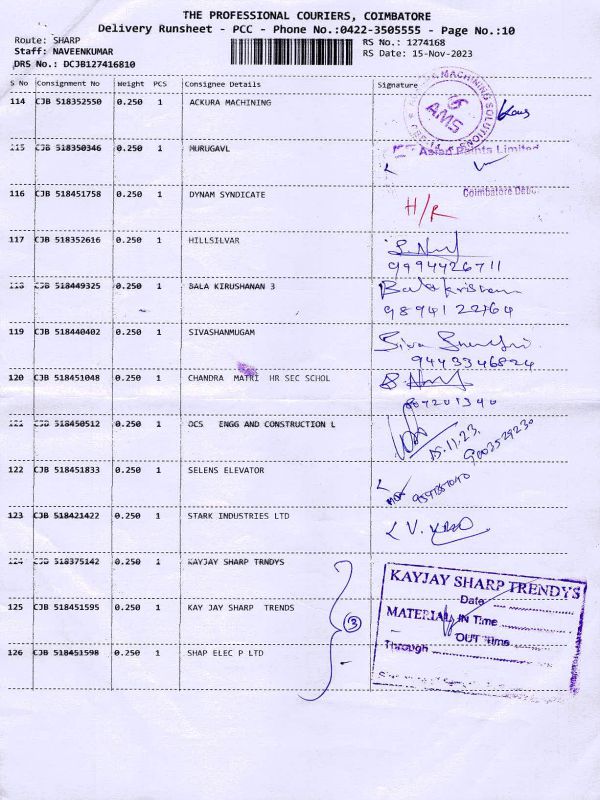 THE PROFESSIONAL COURIERS, COIMBATORE
Delivery Runsheet - PCC - Phone No.:0422-3505555 - Page No.:10
Route: SHARP
RS No.: 1274168
Staff: NAVEENKUMAR
RS Date: 15-Nov-2023
DRS No.: DCJB127416810
S No Consignment No Weight PCS Consignee Details Signature
114 CJB 518352550 0.250 1 ACKURA MACHINING
MACHINING SOLUTIONS
AMS
115 CJB 518350346 0.250 1 MURUGAVL
Asian Paints Limited
116 CJB 518451758 0.250 1 DYNAM SYNDICATE
Coimbatore
H/R
117 CJB 518352616 0.250 1 HILLSILVAR
9994426711
118 CJB 518449325 0.250 1 BALA KIRUSHANAN 3
Balakrishnan
9894122764
119 CJB 518440402 0.250 1 SIVASHANMUGAM
Siva
9443346824
120 CJB 518451048 0.250 1 CHANDRA MATRI HR SEC SCHOL
121 CJB 518450512 0.250 1 OCS ENGG AND CONSTRUCTION L
15.11.23
9003529230
122 CJB 518451833 0.250 1 SELENS ELEVATOR
123 CJB 518421422 0.250 1 STARK INDUSTRIES LTD
124 CJB 518375142 0.250 1 KAYJAY SHARP TRNDYS
125 CJB 518451595 0.250 1 KAY JAY SHARP TRENDS
126 CJB 518451598 0.250 1 SHAP ELEC P LTD
3
KAYJAY SHARP TRENDYS
Date
MATERIAL IN Time
OUT Time
Through